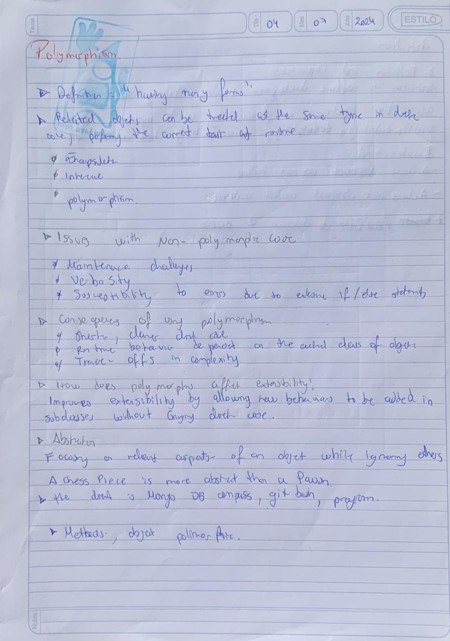 04 07 2024 ESTILO
Polymorphism
Definition "having many forms"
Related objects can be treated as the same type in
code, the correct at
Encapsulate
polymorphism.
Issues with Non-polymorphic code
Maintenance challenges
Verbosity
Susceptibility to errors due to extensive if/else statements
Consequences of using polymorphism
Shorter, cleaner code
Runtime behavior on the actual class of object
Trade-offs in complexity
How does polymorphism affect extensibility?
Improves extensibility by allowing new behaviors to be added in
subclasses without code.
Abstraction
Focusing on relevant aspects of an object while ignoring others.
A chess Piece is more abstract than a Pawn.
the is Mongo DB compass, git bash, program.
Methods, object